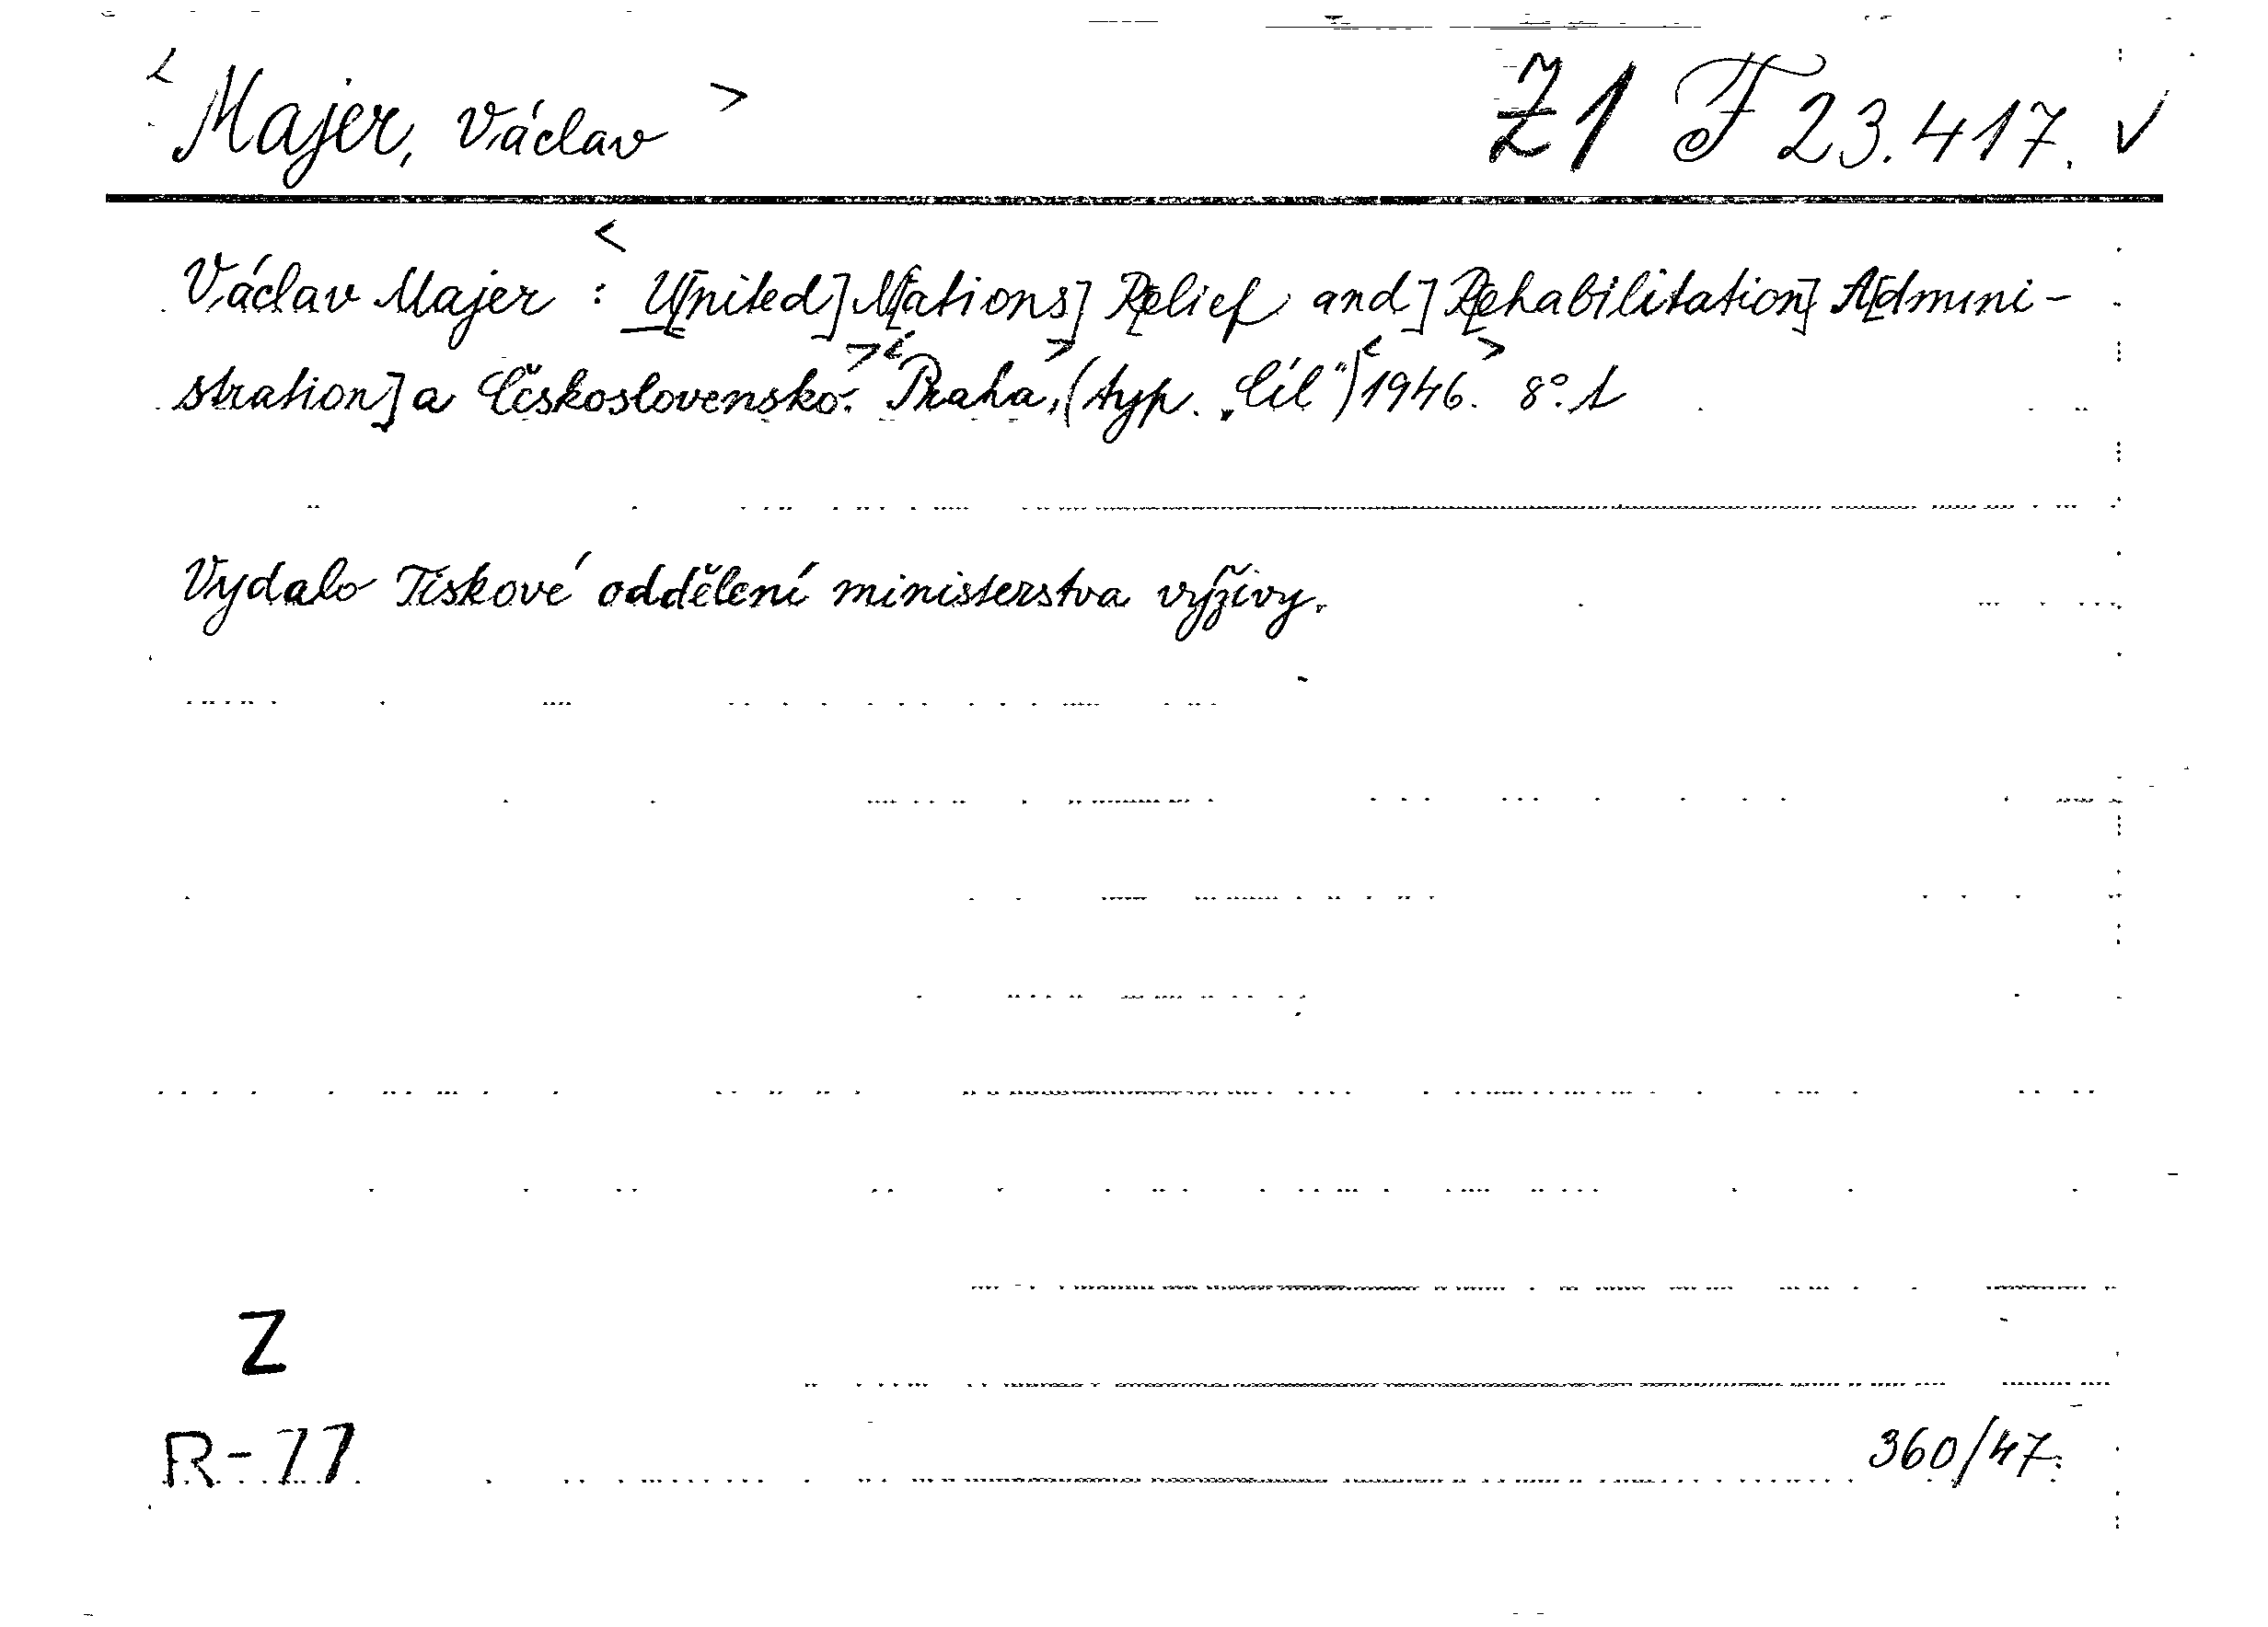 < Majer, Václav > Ž1 F 23.417. √
Václav Majer : < U[nited] N[ations] R[elief and] R[ehabilitation] A[dmini-
stration] a Československo. > < Praha, > (typ. „Cíl") < 1946. > 8°. 1
Vydalo Tiskové oddělení ministerstva výživy.
Z
R-77
360/47.